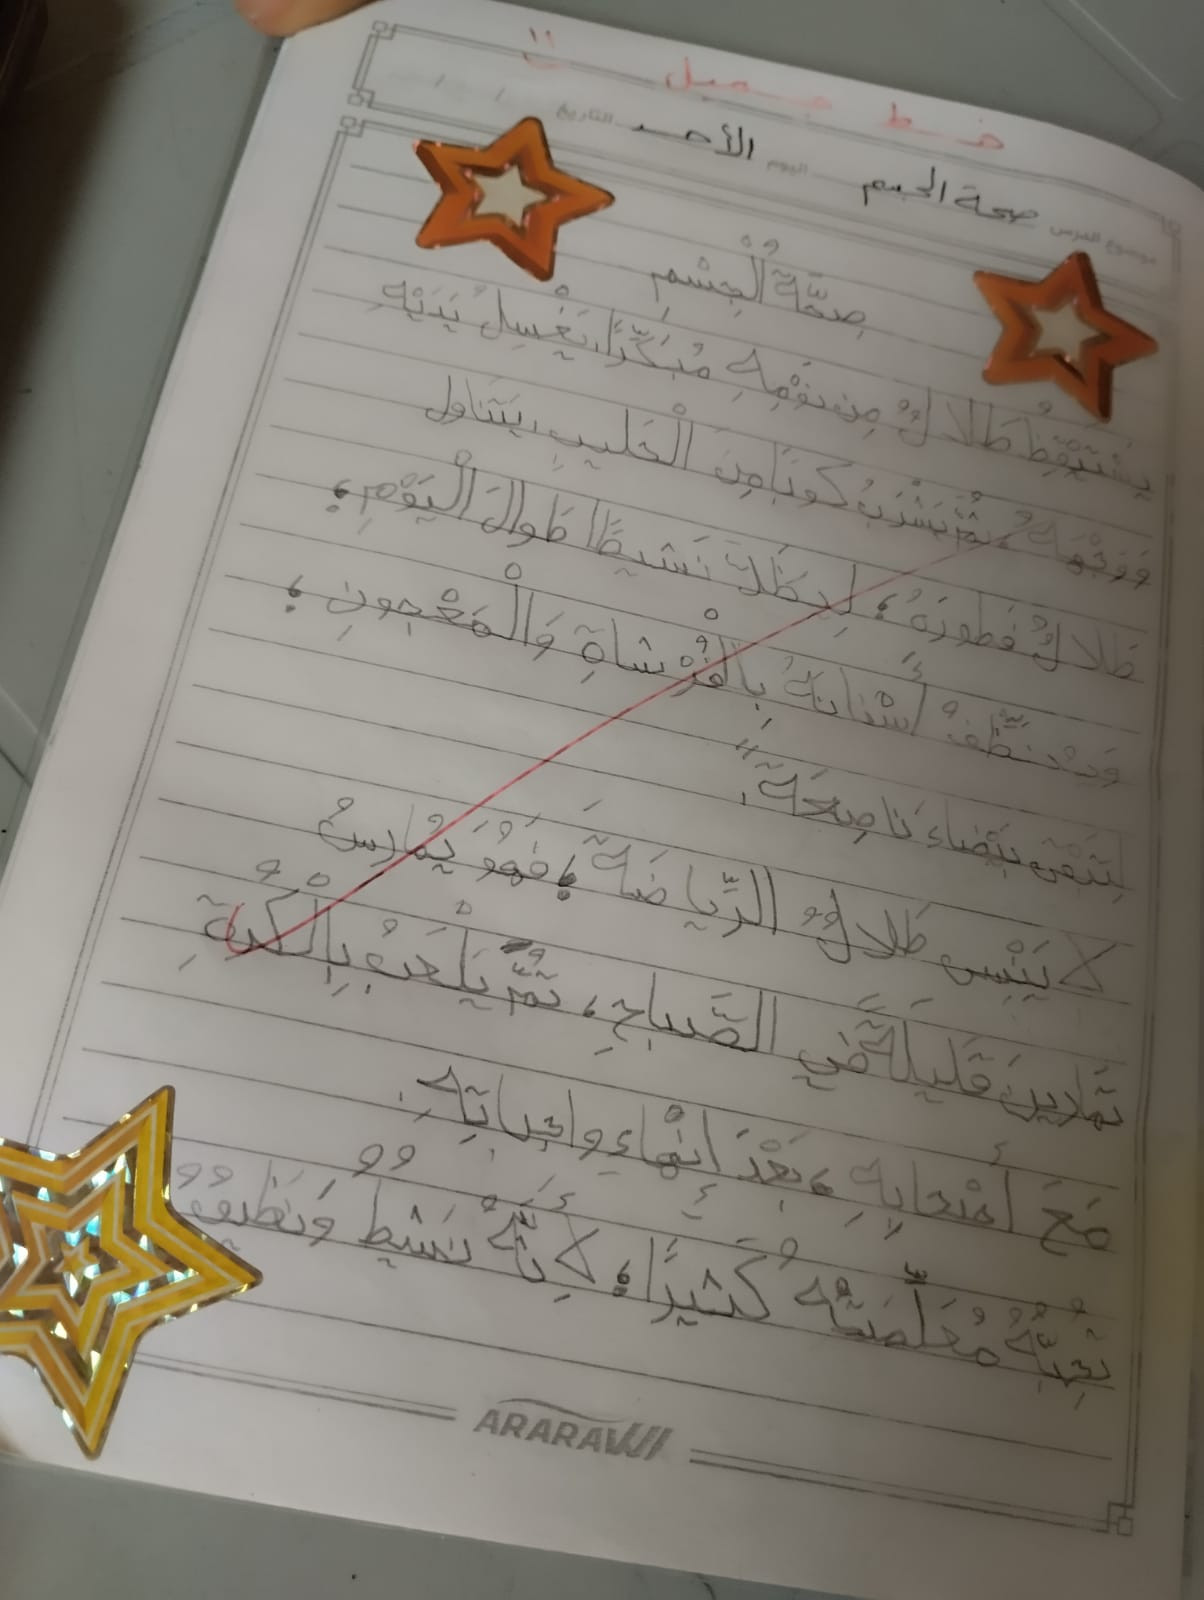 خط جميل
موضوع الدرس صحة الجسم اليوم الأحد التاريخ
صِحَّةُ الْجِسْمِ
يَسْتَيْقِظُ طَلالٌ مِن نَوْمِهِ مُبَكِّرًا، يَغْسِلُ يَدَيْهِ
وَوَجْهَهُ، ثُمَّ يَشْرَبُ كوبَا مِنَ الْحَليبِ، يَتَناوَل
طَلالٌ فَطورَهُ، لِيَظَلَّ نَشيطًا طَوالَ الْيَوْمِ،
وَيُنَظِّفُ أَسْنانَهُ بِالْفُرْشاةِ وَالْمَعْجونِ،
لِتَبْقى بَيْضاءَ ناصِعَةً.
لا يَنْسى طَلالٌ الرِّياضَةَ، فَهُوَ يُمارِسُ
تَمارينَ قَليلَةً في الصَّباحِ، ثُمَّ يَلْعَبُ بِالْكُرَةِ
مَعَ أَصْحابِهِ، بَعْدَ إِنْهاءِ واجِباتِهِ.
تُحِبُّهُ مُعَلِّمَتُهُ كَثيرًا، لِأَنَّهُ نَشيطٌ وَنَظيفٌ
ARARAWI